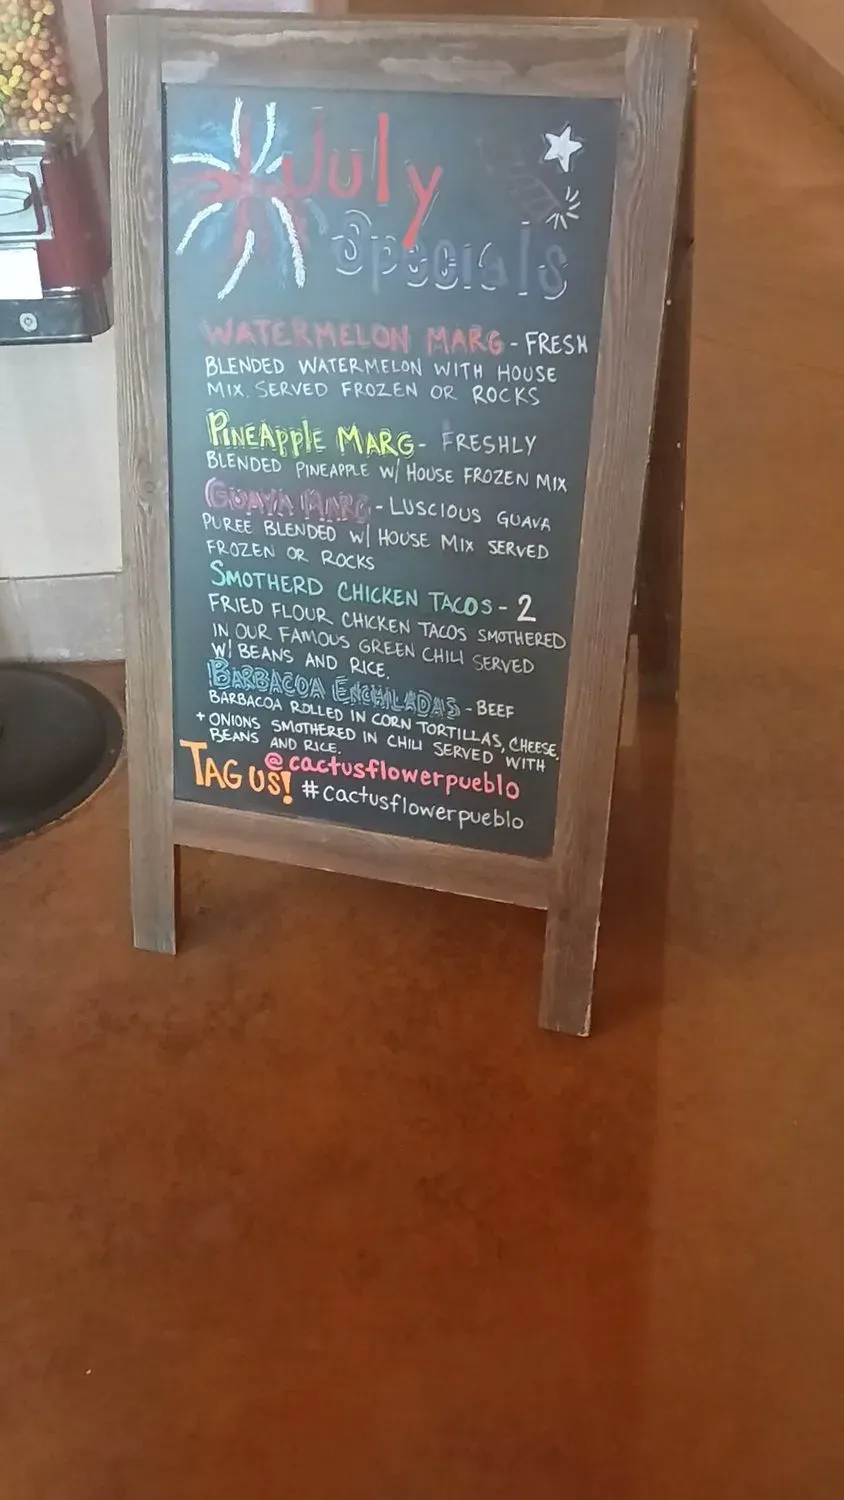 July
Specials
WATERMELON MARG - FRESH
BLENDED WATERMELON WITH HOUSE
MIX. SERVED FROZEN OR ROCKS
PINEAPPLE MARG - FRESHLY
BLENDED PINEAPPLE W/ HOUSE FROZEN MIX
GUAVA MARG - LUSCIOUS GUAVA
PUREE BLENDED W/ HOUSE MIX SERVED
FROZEN OR ROCKS
SMOTHERD CHICKEN TACOS - 2
FRIED FLOUR CHICKEN TACOS SMOTHERED
IN OUR FAMOUS GREEN CHILI SERVED
W/ BEANS AND RICE.
BARBACOA ENCHILADAS - BEEF
BARBACOA ROLLED IN CORN TORTILLAS, CHEESE,
+ ONIONS SMOTHERED IN CHILI SERVED WITH
BEANS AND RICE.
TAG US! @cactusflowerpueblo
#cactusflowerpueblo